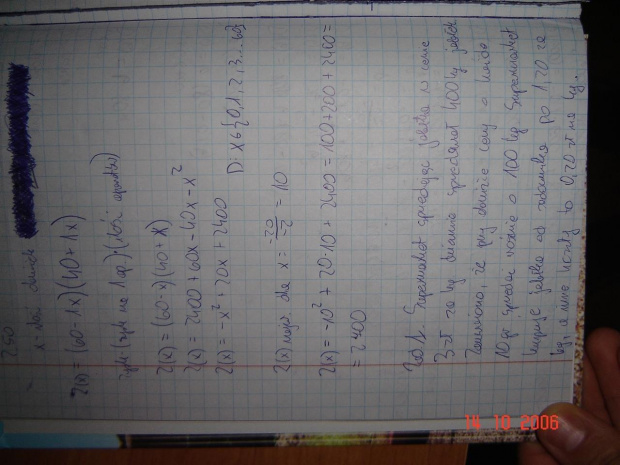 x - ilość obniżek
Z(x) = (60-1x)(40+1x)
Zysk = (zysk na 1 ap.) · (ilość aparatów)
Z(x) = (60-x)(40+x)
Z(x) = 2400 + 60x - 40x - x²
Z(x) = -x² + 20x + 2400 D: x∈{0,1,2,3...60}
Z(x) najw. dla x = -20/-2 = 10
Z(x) = -10² + 20·10 + 2400 = 100 + 200 + 2400 =
= 2400
Zad 1. Supermarket sprzedając jabłka w cenie
3 zł za kg dziennie sprzedawał 400 kg jabłek
Zauważono, że przy obniżce ceny o każde
10 gr sprzedaż rośnie o 100 kg. Supermarket
kupuje jabłka od po 1,20 za
kg, a inne koszty to 0,20 zł na kg.
14 10 2006